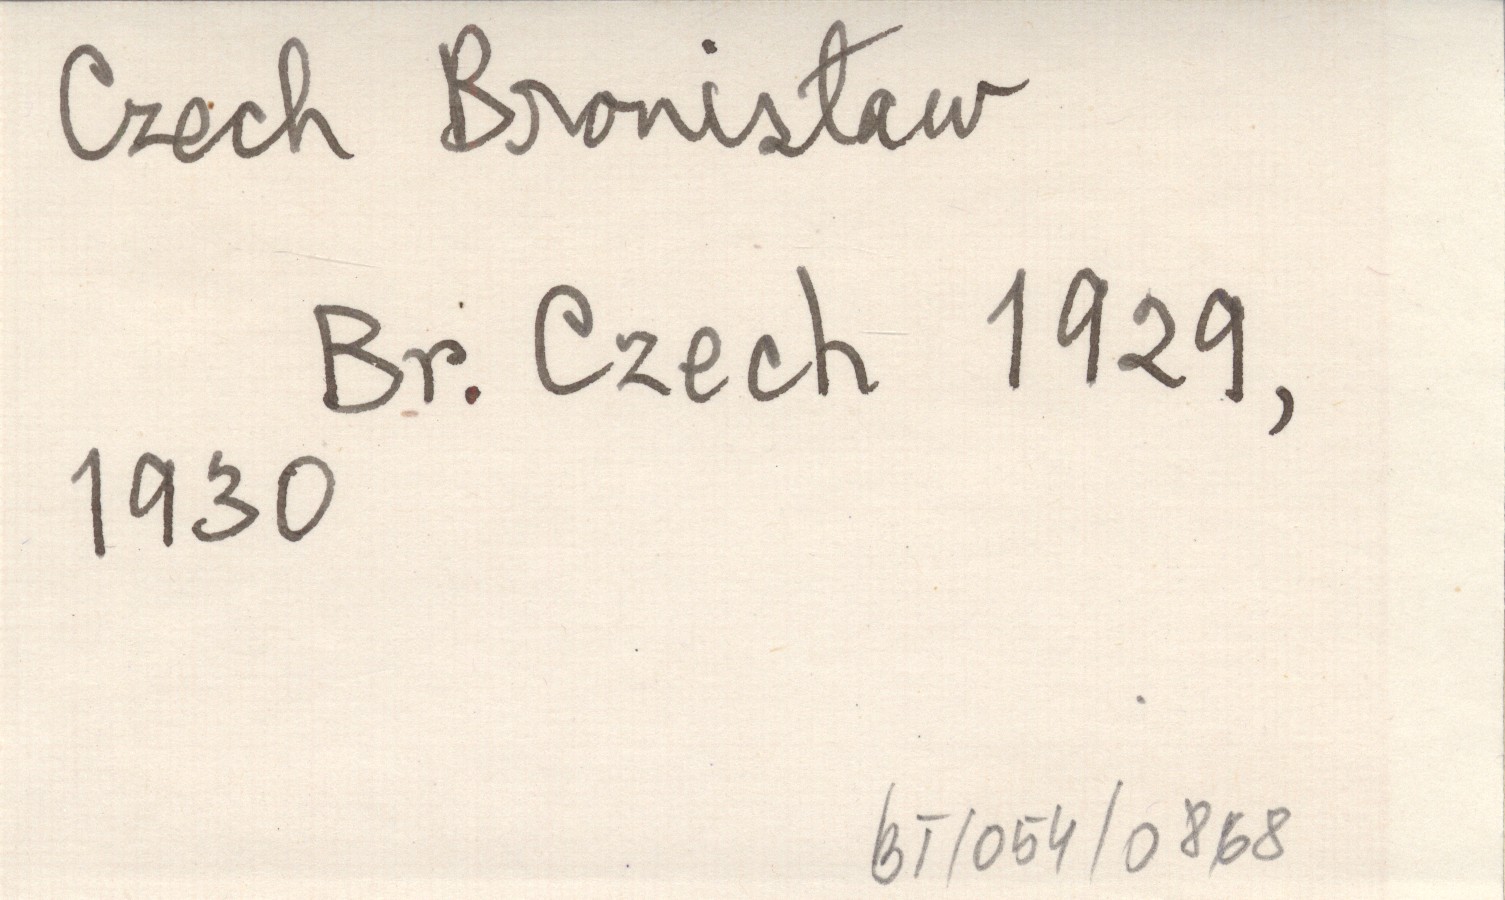 Czech Bronisław
Br. Czech 1929,
1930
BT/054/0868